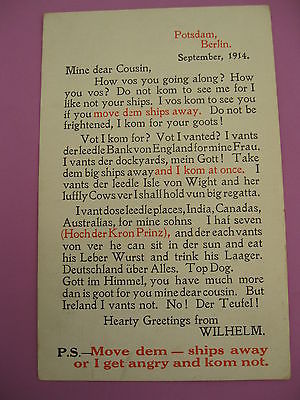 Potsdam,
Berlin.
September, 1914.
Mine dear Cousin,
How vos you going along? How
you vos? Do not kom to see me for I
like not your ships. I vos kom to see you
if you move dem ships away. Do not be
frightened, I kom for your goots!
Vot I kom for? Vot I vanted? I vants
der leedle Bank von England for mine Frau.
I vants der dockyards, mein Gott! Take
dem big ships away and I kom at once. I
vants der leedle Isle von Wight and her
luffly Cows ver I shall hold vun big regatta.
I vant dose leedle places, India, Canadas,
Australias, for mine sohns I haf seven
(Hoch der Kron Prinz), and der each vants
von ver he can sit in der sun and eat
his Leber Wurst and trink his Laager.
Deutschland über Alles. Top Dog.
Gott im Himmel, you have much more
dan is goot for you mine dear cousin. But
Ireland I vants not. No! Der Teufel!
Hearty Greetings from
WILHELM.
P.S.—Move dem — ships away
or I get angry and kom not.